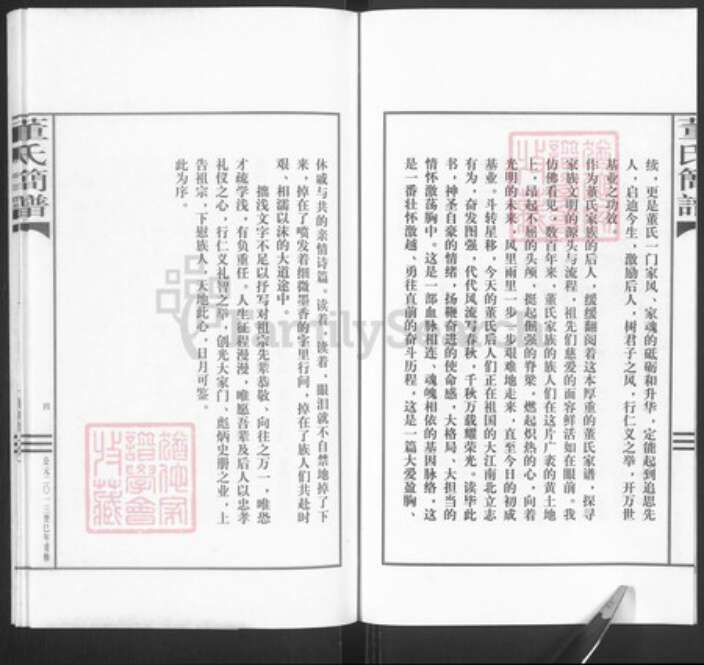 董氏简谱
续，更是董氏一门家风、家魂的砥砺和升华，定能起到追思先
人，启迪今生，激励后人，树君子之风，行仁义之举，开万世
基业之功效
作为董氏家族的后人，缓缓翻阅着这本厚重的董氏家谱，探寻
家族文明的源头与流程，祖先们慈爱的面容鲜活如在眼前。我
仿佛看见，数百年来，董氏家族的族人们在这片广袤的黄土地
上，昂起不屈的头颅，挺起倔强的脊梁，燃起炽热的心，向着
光明的未来，风里雨里一步一步艰难地走来，直至今日的初成
基业。斗转星移，今天的董氏后人们正在祖国的大江南北立志
有为，奋发图强，代代风流写春秋，千秋万载耀荣光。读毕此
书，神圣自豪的情绪，扬鞭奋进的使命感，大格局、大担当的
情怀激荡胸中。这是一部血脉相连、魂魄相依的基因脉络，这
是一番壮怀激越、勇往直前的奋斗历程，这是一篇大爱盈胸、
休戚与共的亲情诗篇。读着，读着，眼泪就不自禁地掉了下
来，掉在了喷发着细微墨香的字里行间，掉在了族人们共赴时
艰、相濡以沫的大道途中。
拙浅文字不足以抒写对祖宗先辈恭敬、向往之万一，唯恐
才疏学浅，有负重任。人生征程漫漫，唯愿吾辈及后人以忠孝
礼仪之心，行仁义礼智之举，创光大家门、彪炳史册之业，上
告祖宗，下慰族人，天地此心，日月可鉴。
此为序。
董氏简谱
四
公元二〇一三癸巳年重修
犹他家
谱学会
收藏
FamilySearch